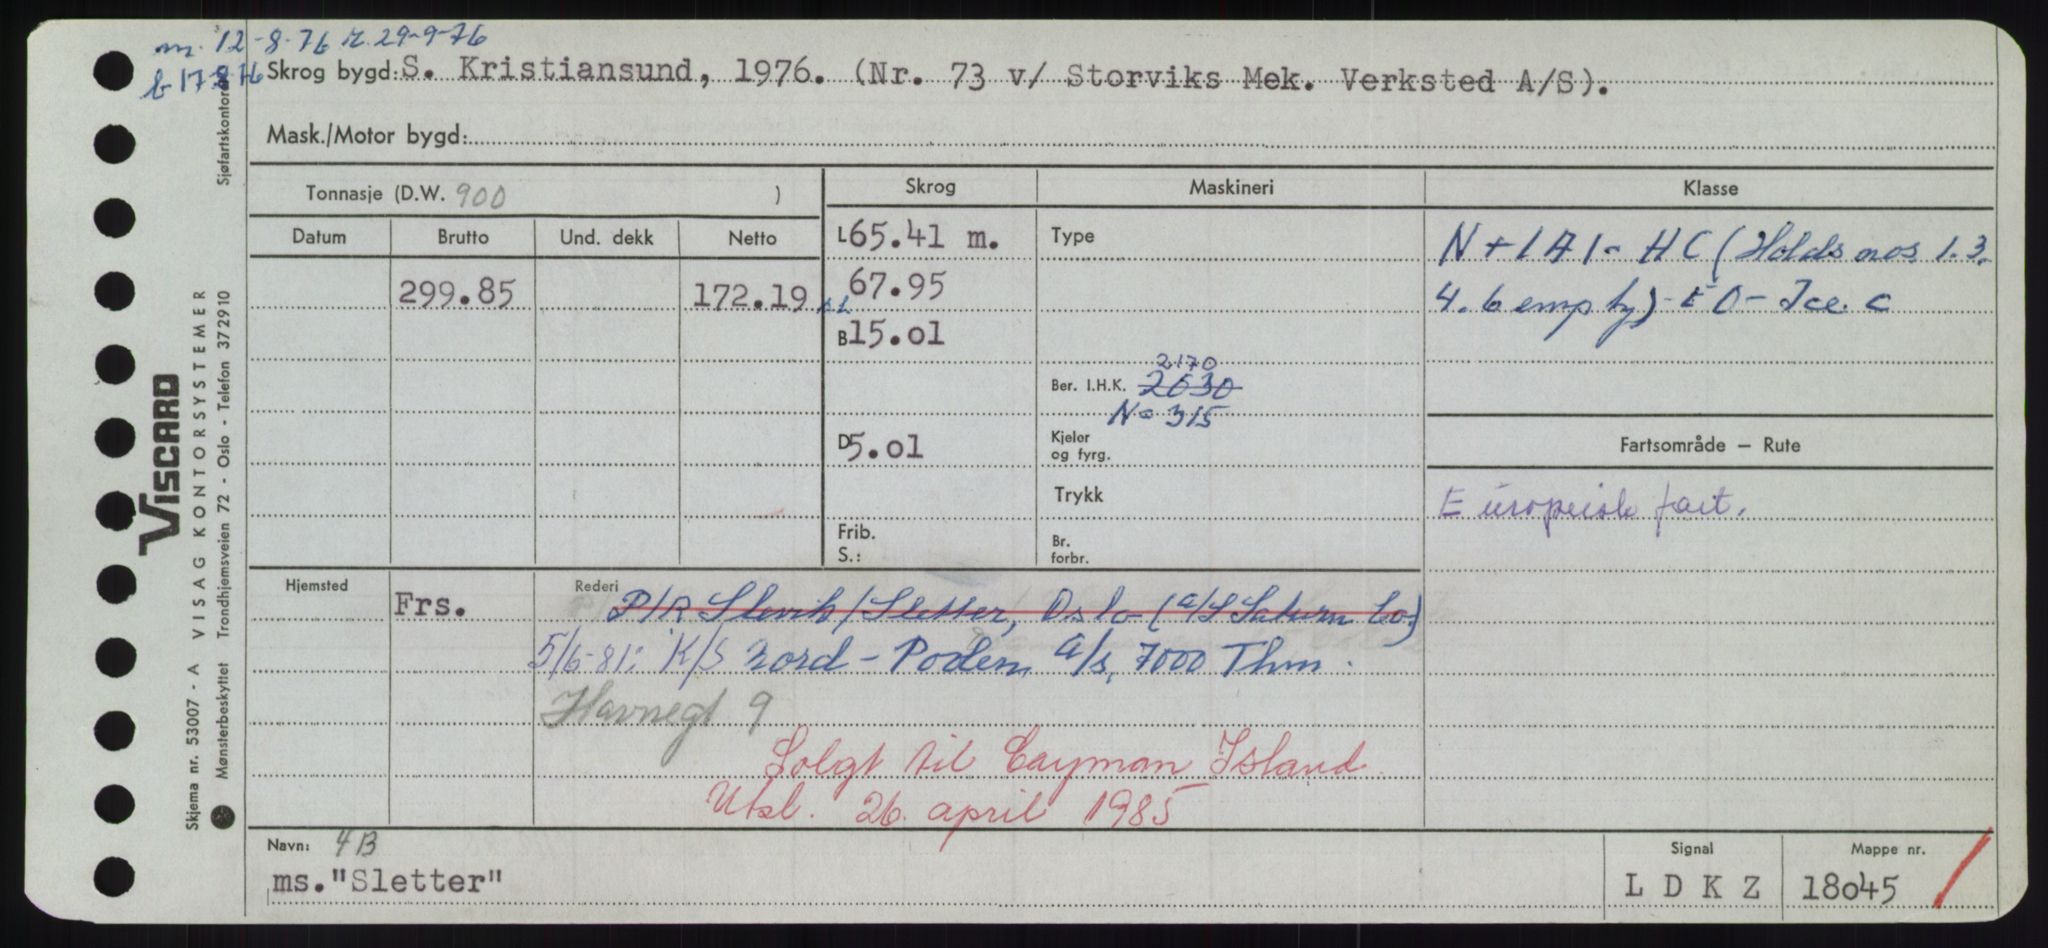 m. 12-8-76 r. 29-9-76
b 17-8-76
Skrog bygd: S. Kristiansund, 1976. (Nr. 73 v/ Storviks Mek. Verksted A/S).
Mask./Motor bygd:
Tonnasje (D.W. 900 )
Skrog
Maskineri
Klasse
Datum
Brutto
Und. dekk
Netto
299.85
172.19
L 65.41 m.
67.95
B 15.01
D 5.01
Frib.
S.:
Type
Ber. I.H.K. 2170
2030
N= 315
Kjeler
og fyrg.
Trykk
Br.
forbr.
N + 1A1 - HC (Holds nos 1.3.
4. 6 empty) - EO - Ice. C
Fartsområde — Rute
Europeisk fart.
Hjemsted
Rederi
Frs.
P/R Slevik/Sletter, Oslo (A/S Saturn Co.)
5/6-81: K/S Nord-Poden A/s, 7000 Thm.
Havnegt 9
Solgt til Cayman Island
Utsl. 26. april 1985
Navn: 4B
ms."Sletter"
Signal
L D K Z
Mappe nr.
18045
VISCARD
Skjema nr. 53007 - A VISAG KONTORSYSTEMER
Mønsterbeskyttet Trondhjemsveien 72 - Oslo - Telefon 372910
Sjøfartskontoret